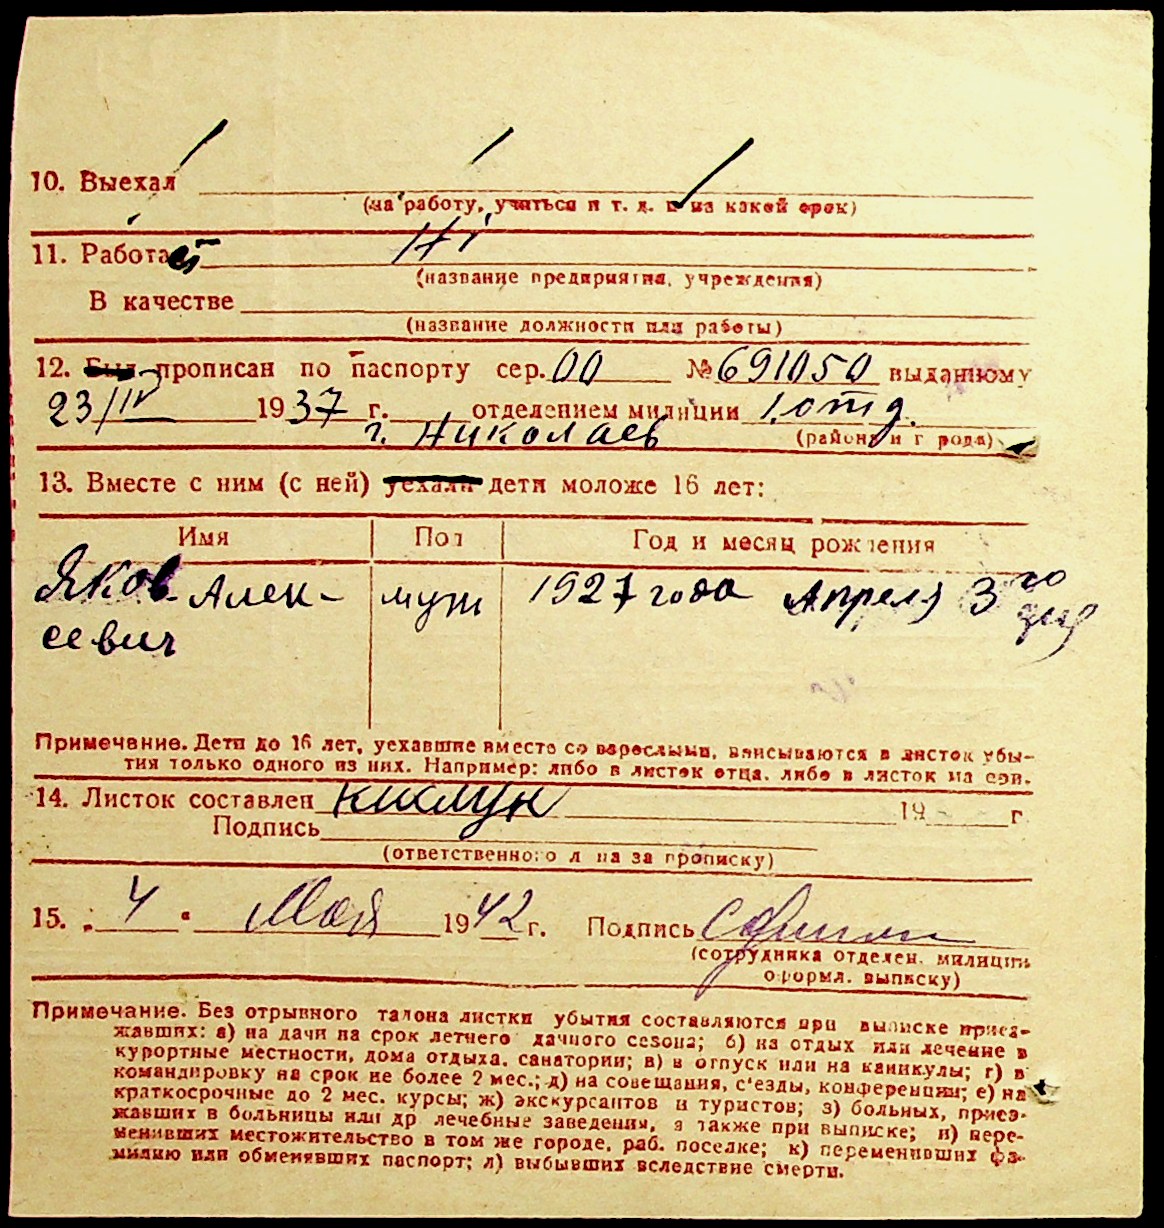 10. Выехал
(на работу, учиться и т. д. и на какой срок)
11. Работает
(название предприятия, учреждения)
В качестве
(название должности или работы)
12. Был прописан по паспорту сер. 00 № 691050 выданному
23/IV 1937 г. отделением милиции 1. отд.
г. Николаев (района и города)
13. Вместе с ним (с ней) уехали дети моложе 16 лет:
Имя Пол Год и месяц рождения
Яков Алек- муж 1927 года Апреля 3го
сеевич дня
Примечание. Дети до 16 лет, уехавшие вместе со взрослыми, вписываются в листок убы-
тия только одного из них. Например: либо в листок отца, либо в листок матери.
14. Листок составлен 19 г
Подпись
(ответственного лица за прописку)
15. „ 4 " Мая 1942 г. Подпись
(сотрудника отделен. милиции
оформл. выписку)
Примечание. Без отрывного талона листки убытия составляются при выписке приез-
жавших: а) на дачи на срок летнего дачного сезона; б) на отдых или лечение в
курортные местности, дома отдыха, санатории; в) в отпуск или на каникулы; г) в
командировку на срок не более 2 мес.; д) на совещания, с'езды, конференции; е) на
краткосрочные до 2 мес. курсы; ж) экскурсантов и туристов; з) больных, приез-
жавших в больницы или др лечебные заведения, а также при выписке; и) пере-
менивших местожительство в том же городе, раб. поселке; к) переменивших фа-
милию или обменявших паспорт; л) выбывших вследствие смерти.